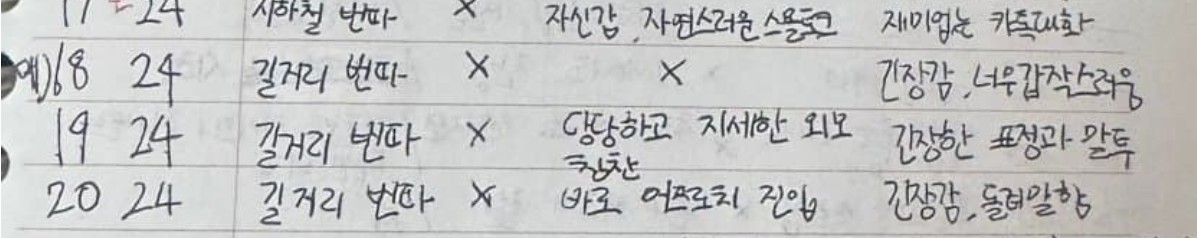 17 24 지하철 번따 X 자신감, 자연스러운 스몰토크 재미없는 카톡대화
예) 18 24 길거리 번따 X X 긴장감, 너무갑작스러움
19 24 길거리 번따 X 당당하고 자세한 외모 긴장한 표정과 말투
칭찬
20 24 길거리 번따 X 바로 어프로치 진입 긴장감, 돌려말함